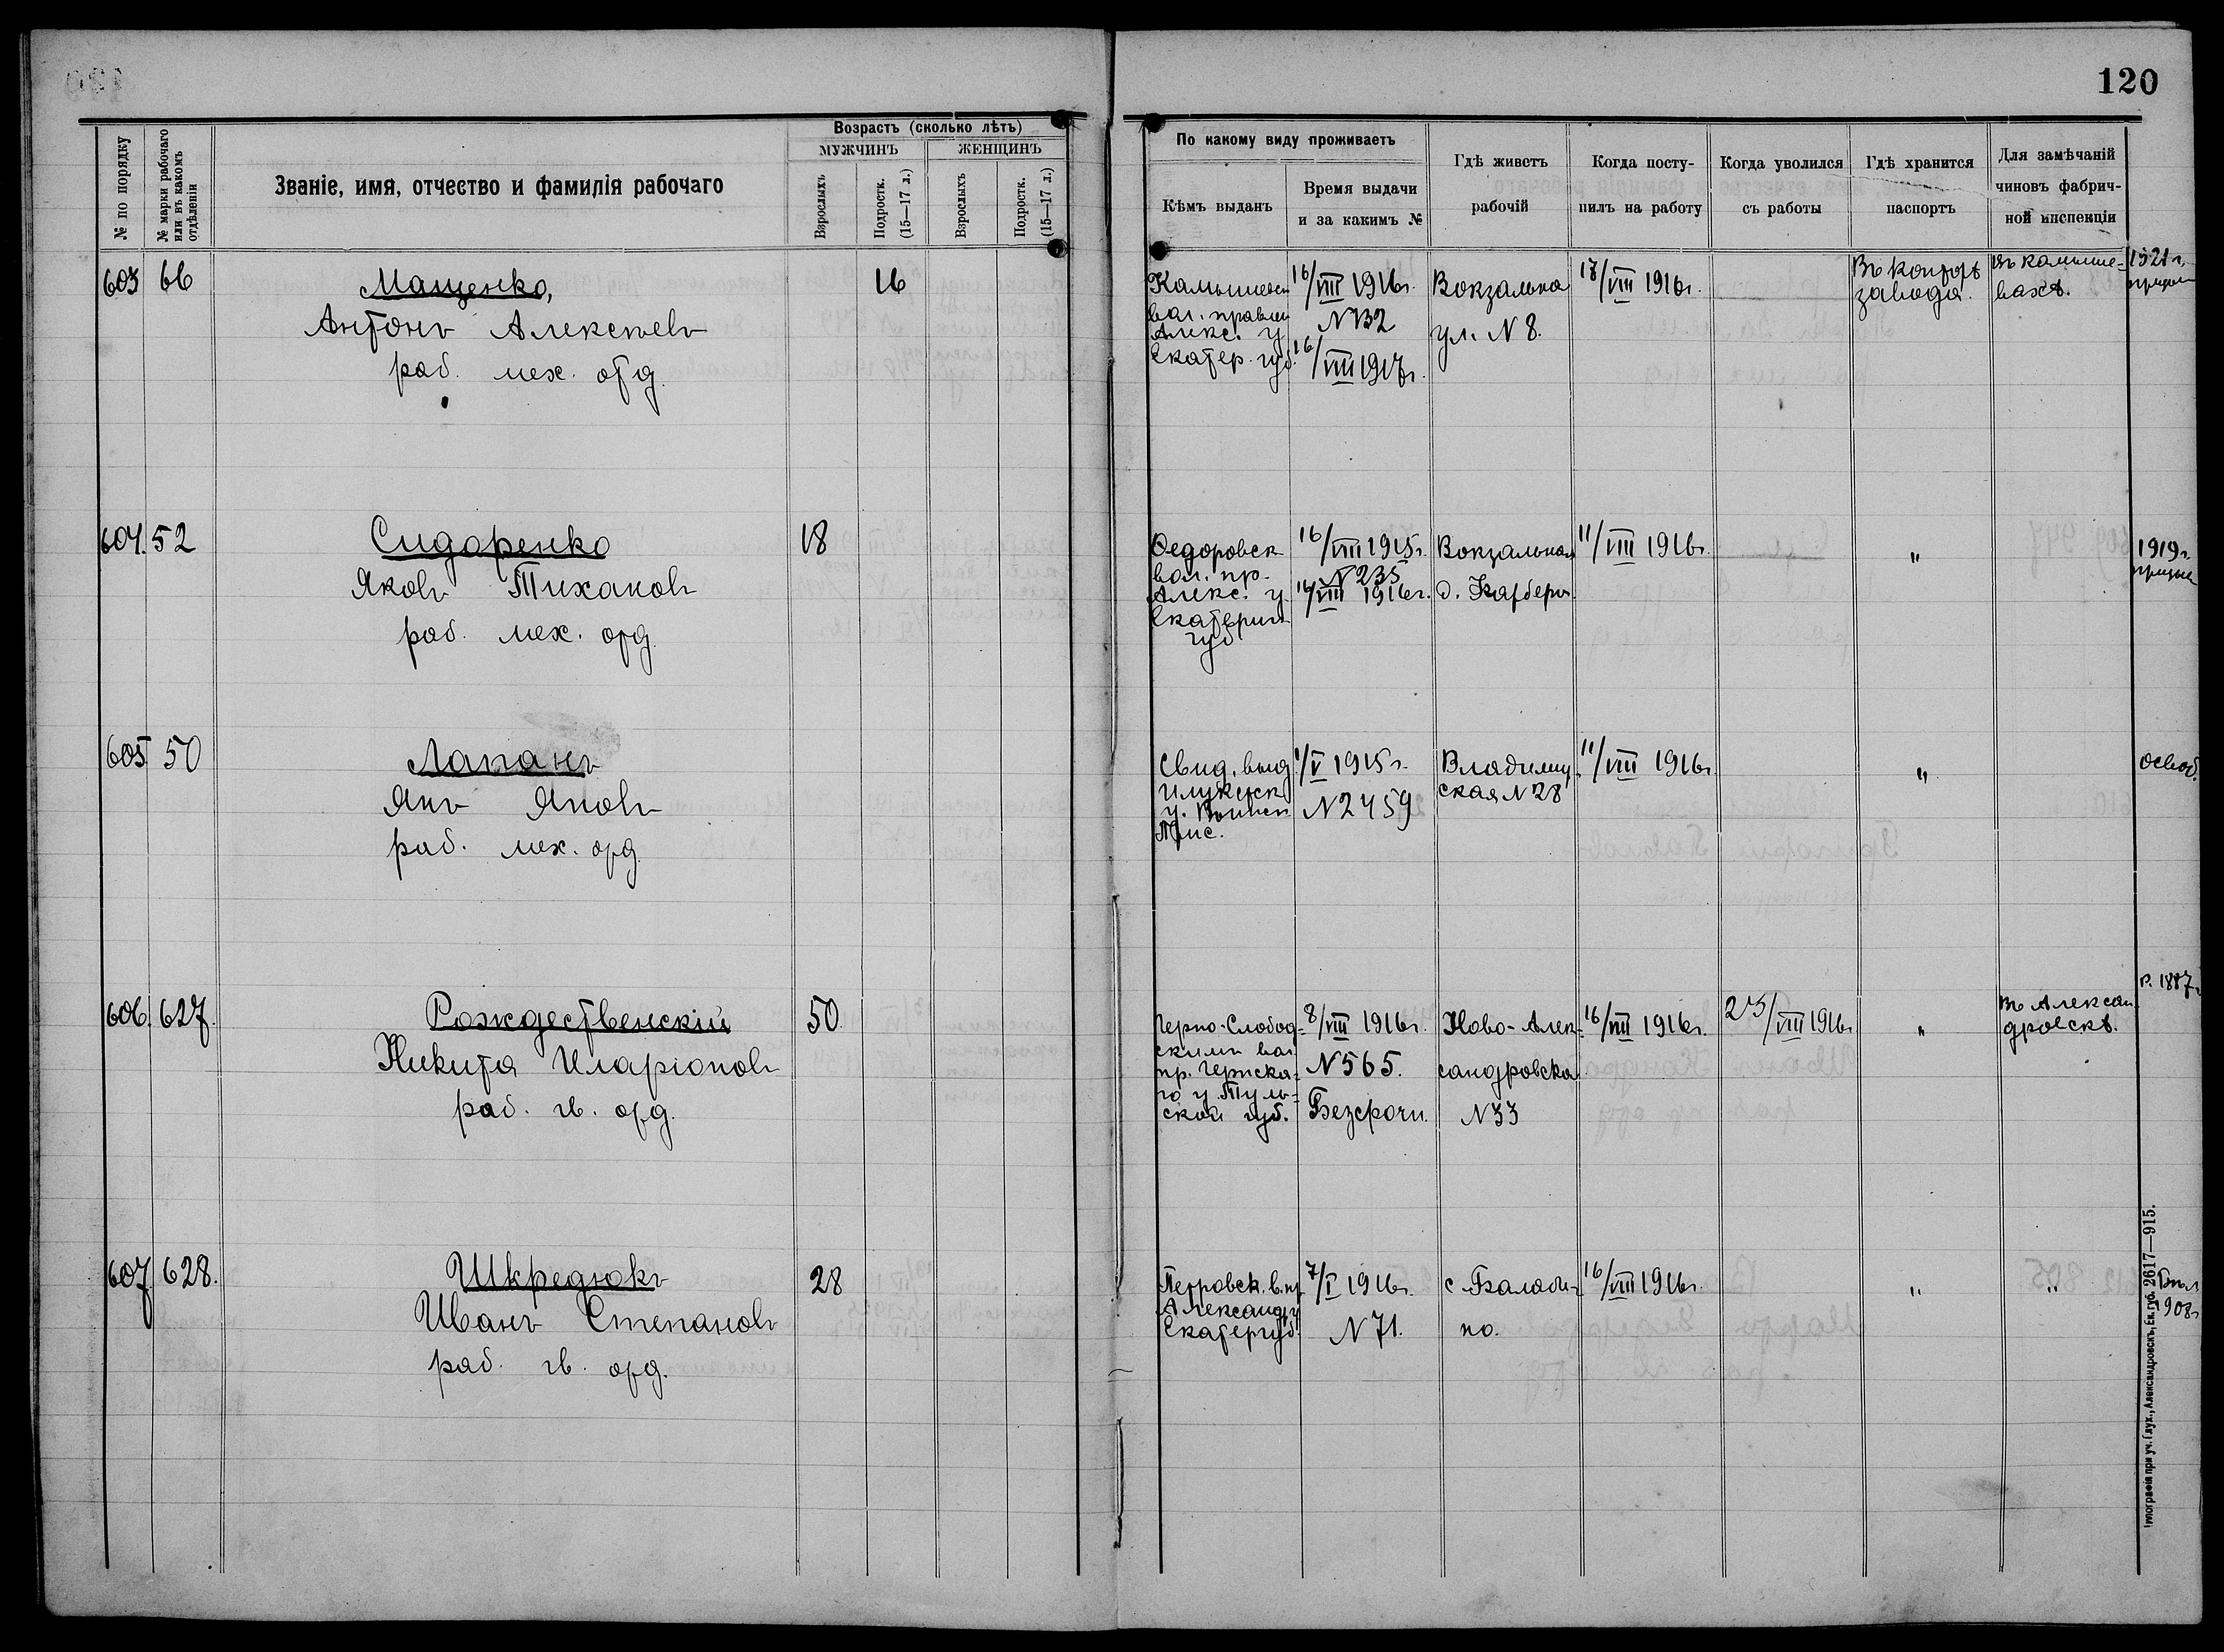 120
№ по порядку
№ марки рабочаго или въ какомъ отдѣленіи
Званіе, имя, отчество и фамилія рабочаго
Возрастъ (сколько лѣтъ)
МУЖЧИНЪ
ЖЕНЩИНЪ
Взрослыхъ
Подростк. (15—17 л.)
Взрослыхъ
Подростк. (15—17 л.)
По какому виду проживаетъ
Кѣмъ выданъ
Время выдачи
и за какимъ №
Гдѣ живетъ
рабочій
Когда посту-
пилъ на работу
Когда уволился
съ работы
Гдѣ хранится
паспортъ
Для замѣчаній
чиновъ фабрич-
ной инспекціи
603 66
Мащенко,
Антонъ Алексѣевъ
раб. мех. отд.
16
вол. правлен
Алекс. у
Екатер. губ.
16/VIII 1916г.
N 132
16/VIII 1917г.
Вокзальна
ул. N 8.
17/VIII 1916г.
Въ конторѣ
завода.
Въ камыше-
вахѣ.
1921 г.
604. 52
Сидоренко
Яковъ Тихановъ
раб. мех. отд.
18
Федоровск
вол. пр.
Алекс. у
Екатерин
губ
16/VIII 1915г.
N 235
16/VIII 1916г.
Вокзальная
11/VIII 1916г.
"
1919 г.
605 50
Лапанъ
Янъ Яновъ
раб. мех. отд.
Свид. выд.
у. Воинск
Прис.
1/V 1915г.
N 2459
Владимир
ская N 28
11/VIII 1916г.
"
освоб.
606. 627.
Рождественскій
Никита Иларіоновъ
раб. чв. отд.
50
Черно-Слобод-
скимъ вол.
пр. Чернска-
го у. Туль-
ской губ.
8/VIII 1916г.
N 565.
Безсрочн.
Ново-Алек-
сандровска
N 33
16/VIII 1916г.
25/VIII 1916г
"
Въ Алексан
дровскѣ.
р. 1887г
607 628.
Шкредюкъ
Иванъ Степановъ
раб. чв. отд.
28
Петровск. в. пр
Александр у
Екатер губ.
7/I 1916г.
N 71.
с Балаби-
но.
16/VIII 1916г.
"
"
1908г
Типографія при уч. Глух., Александровскъ, Ек. губ. 2617—915.